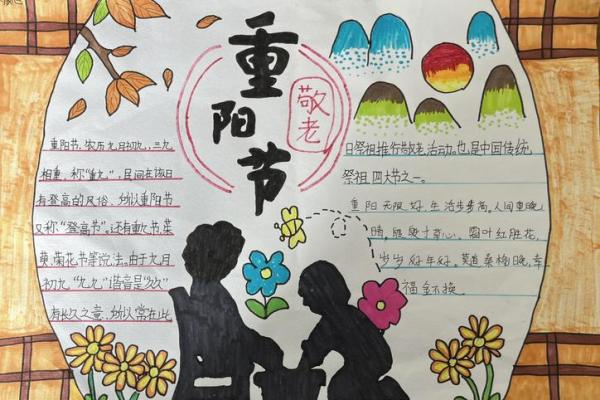 重阳节
敬老
重阳节,农历九月初九,二九
相重,称"重九",民间在该日
有登高的风俗,所以重阳节
又称"登高节"。还有重九节、菜
萸、菊花节等说法。由于九月
初九,"九九"谐音是"久久"
有长久之意,所以常在此
日祭祖推行敬老活动。也是中国传统
祭祖四大节之一。
重阳无限好,生活步步高。人间重晚
晴,胜似十童心。霜叶红胜花,
岁岁好年好。莫道桑榆晚,幸
福金不换